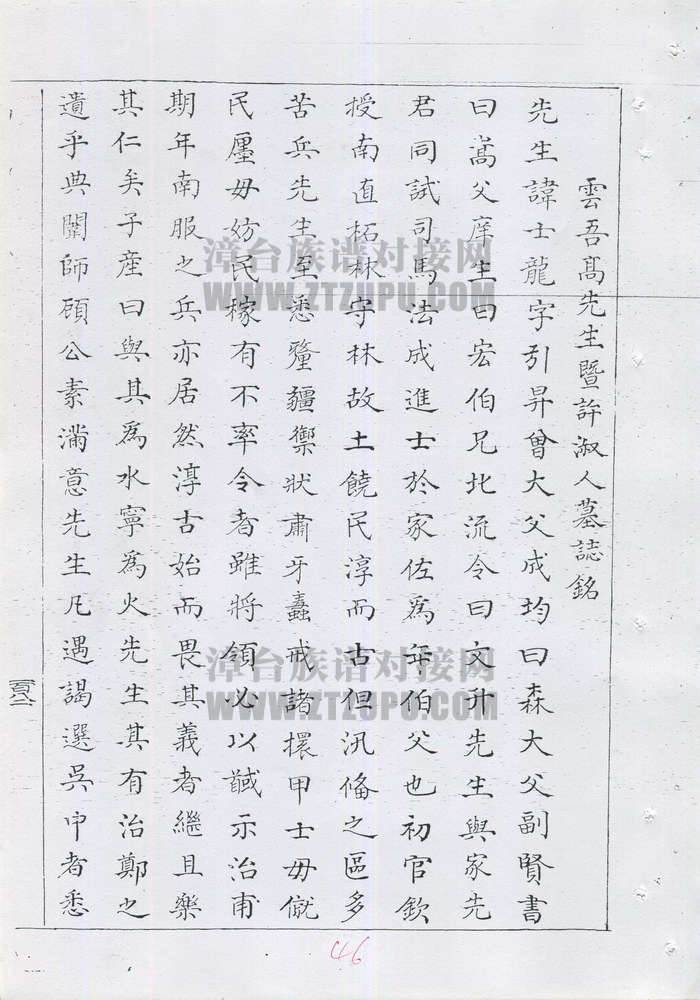 雲吾髙先生暨許淑人墓誌銘
先生諱士龍字引昇曾大父成均曰森大父副賢書
曰嵩父庠生曰宏伯兄北流令曰文升先生與家先
君同試司馬法成進士於家佐為年伯父也初官欽
授南直柘林守林故土饒民淳而古但汛俻之區多
苦兵先生至悉釐疆禦狀肅牙纛戒諸擐甲士毋僦
民廛毋妨民稼有不率令者雖將領必以馘示治甫
期年南服之兵亦居然淳古始而畏其義者繼且樂
其仁矣子産曰與其為水寧為火先生其有治鄭之
遺乎典閫師頎公素滿意先生凡遇謁選吳中者悉
百八二
46
漳台族谱对接网
WWW.ZTZUPU.COM
漳台族谱对接网
WWW.ZTZUPU.COM